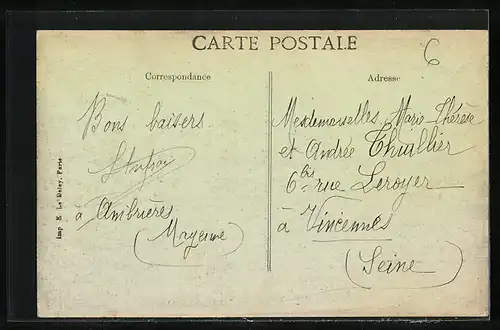 CARTE POSTALE
6
Correspondance
Bons baisers
à Ambrière
(Mayenne)
Adresse
Mesdemoiselles Marie-Thérèse
et Andrée Thuillier
6 bis rue Leroyer
à Vincennes
(Seine)
Imp. E. Le Deley, Paris